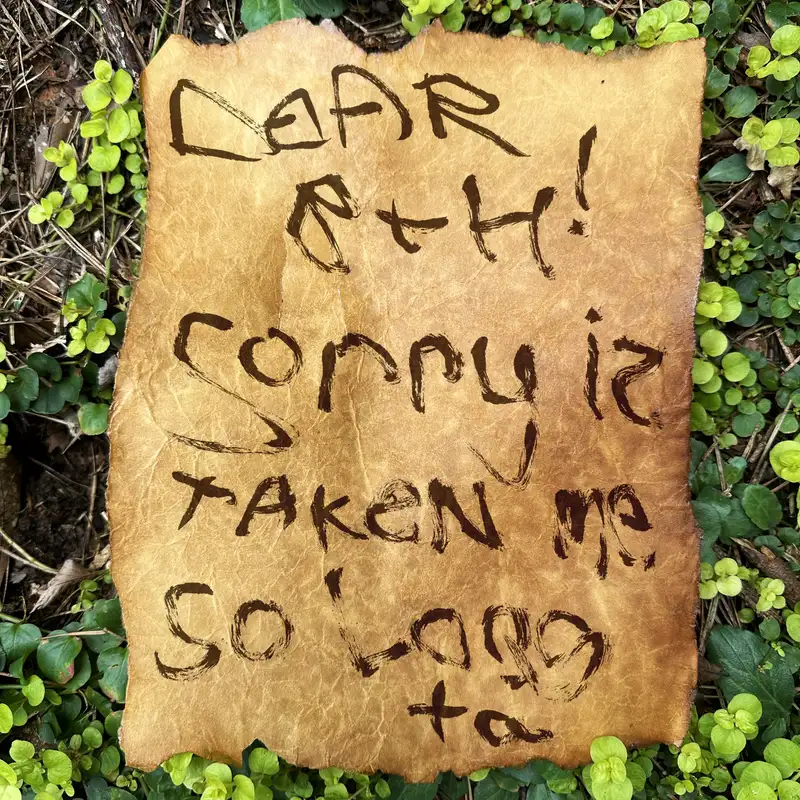 DeAR
R+H!
Sorry iz
tAKeN me
SO Logg
ta